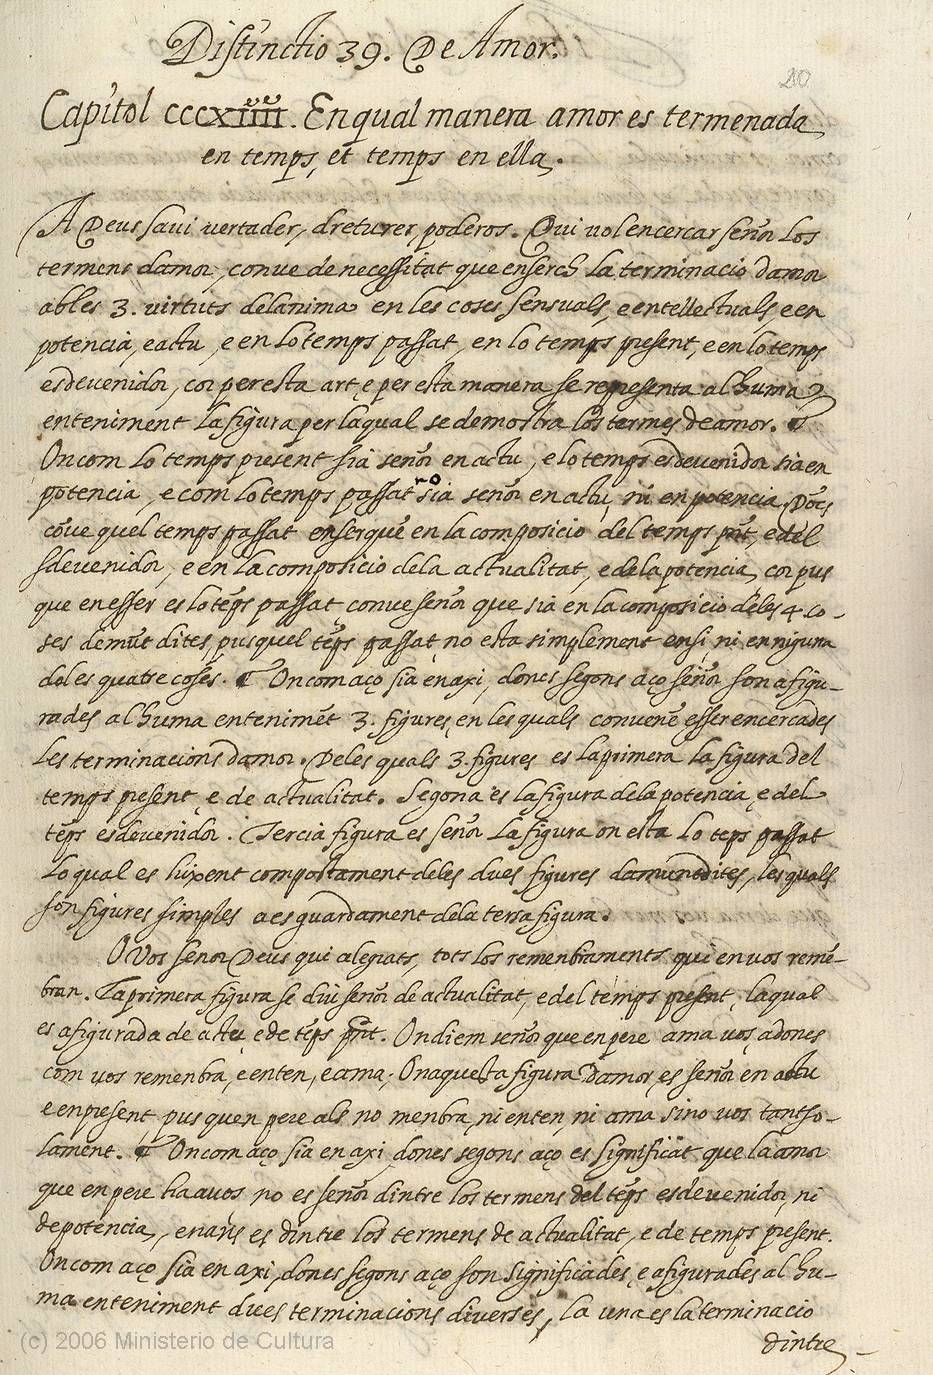 Distinctio 39. De Amor.
20
Capitol cccxiiii. En qual manera amor es termenada
en temps, et temps en ella.
A Deus savi vertader, dreturer, poderos. Qui vol encercar señor los
termens damor, conve de necessitat que enserch la terminacio damor
ab les 3. virtuts delanima en les coses sensuals, e entellectuals, e en
potencia, e actu, e en lo temps passat, en lo temps present, e en lo temps
esdevenidor, cor per esta art e per esta manera se representa al huma
enteniment la figura per la qual se demostra los termes de amor.
On com lo temps present sia señor en actu, e lo temps esdevenidor sia en
potencia, e com lo temps passat no sia señor en actu, ni en potencia, Dõcs
cõve quel temps passat enserquẽ en la composicio del temps pñt, e del
sdevenidor, e en la composicio de la actualitat, e de la potencia, cor pus
que en esser es lo tẽps passat conve señor que sia en la composicio deles 4 co-
ses demũt dites, pus quel tẽps passat no esta simplement en si, ni en nigura
deles quatre coses. ¶ On com aço sia en axi, doncs segons aço señor son afigu-
rades al huma entenimẽt 3. figures, en les quals convenẽ esser encercades
les terminacions damor. Deles quals 3. figures es la primera la figura del
temps present, e de actualitat. Segona es la figura dela potencia, e del
tẽps esdevenidor. Tercia figura es señor la figura on esta lo teps passat
lo qual es luxent compostament deles dues figures damuntdites, les quals
son figures simples a esguardament dela terra figura.
O Vos señor Deus qui alegrats, tots los remenbraments qui en vos remẽ-
bran. La primera figura se diu señor de actualitat, e del temps present, la qual
es afigurada de actu, e de tẽps pñt. On diem señor que en pere ama vos, adones
com vos remenbra, e enten, e ama; On aquesta figura damor, es señor en actu
e en present pus quen pere als no menbra, ni enten, ni ama sino vos tantso-
lament. ¶ On com aço sia en axi, dones segons aço es significat que la amor
que en pere ha a vos no es señor dintre los termens del tẽps esdevenidor, ni
de potencia, enans es dintre los termens de actualitat, e de temps present.
On com aço sia en axi, dones segons aço son significades, e afigurades al hu-
ma enteniment dues terminacions diverses, la una es la terminacio
dintre
(c) 2006 Ministerio de Cultura